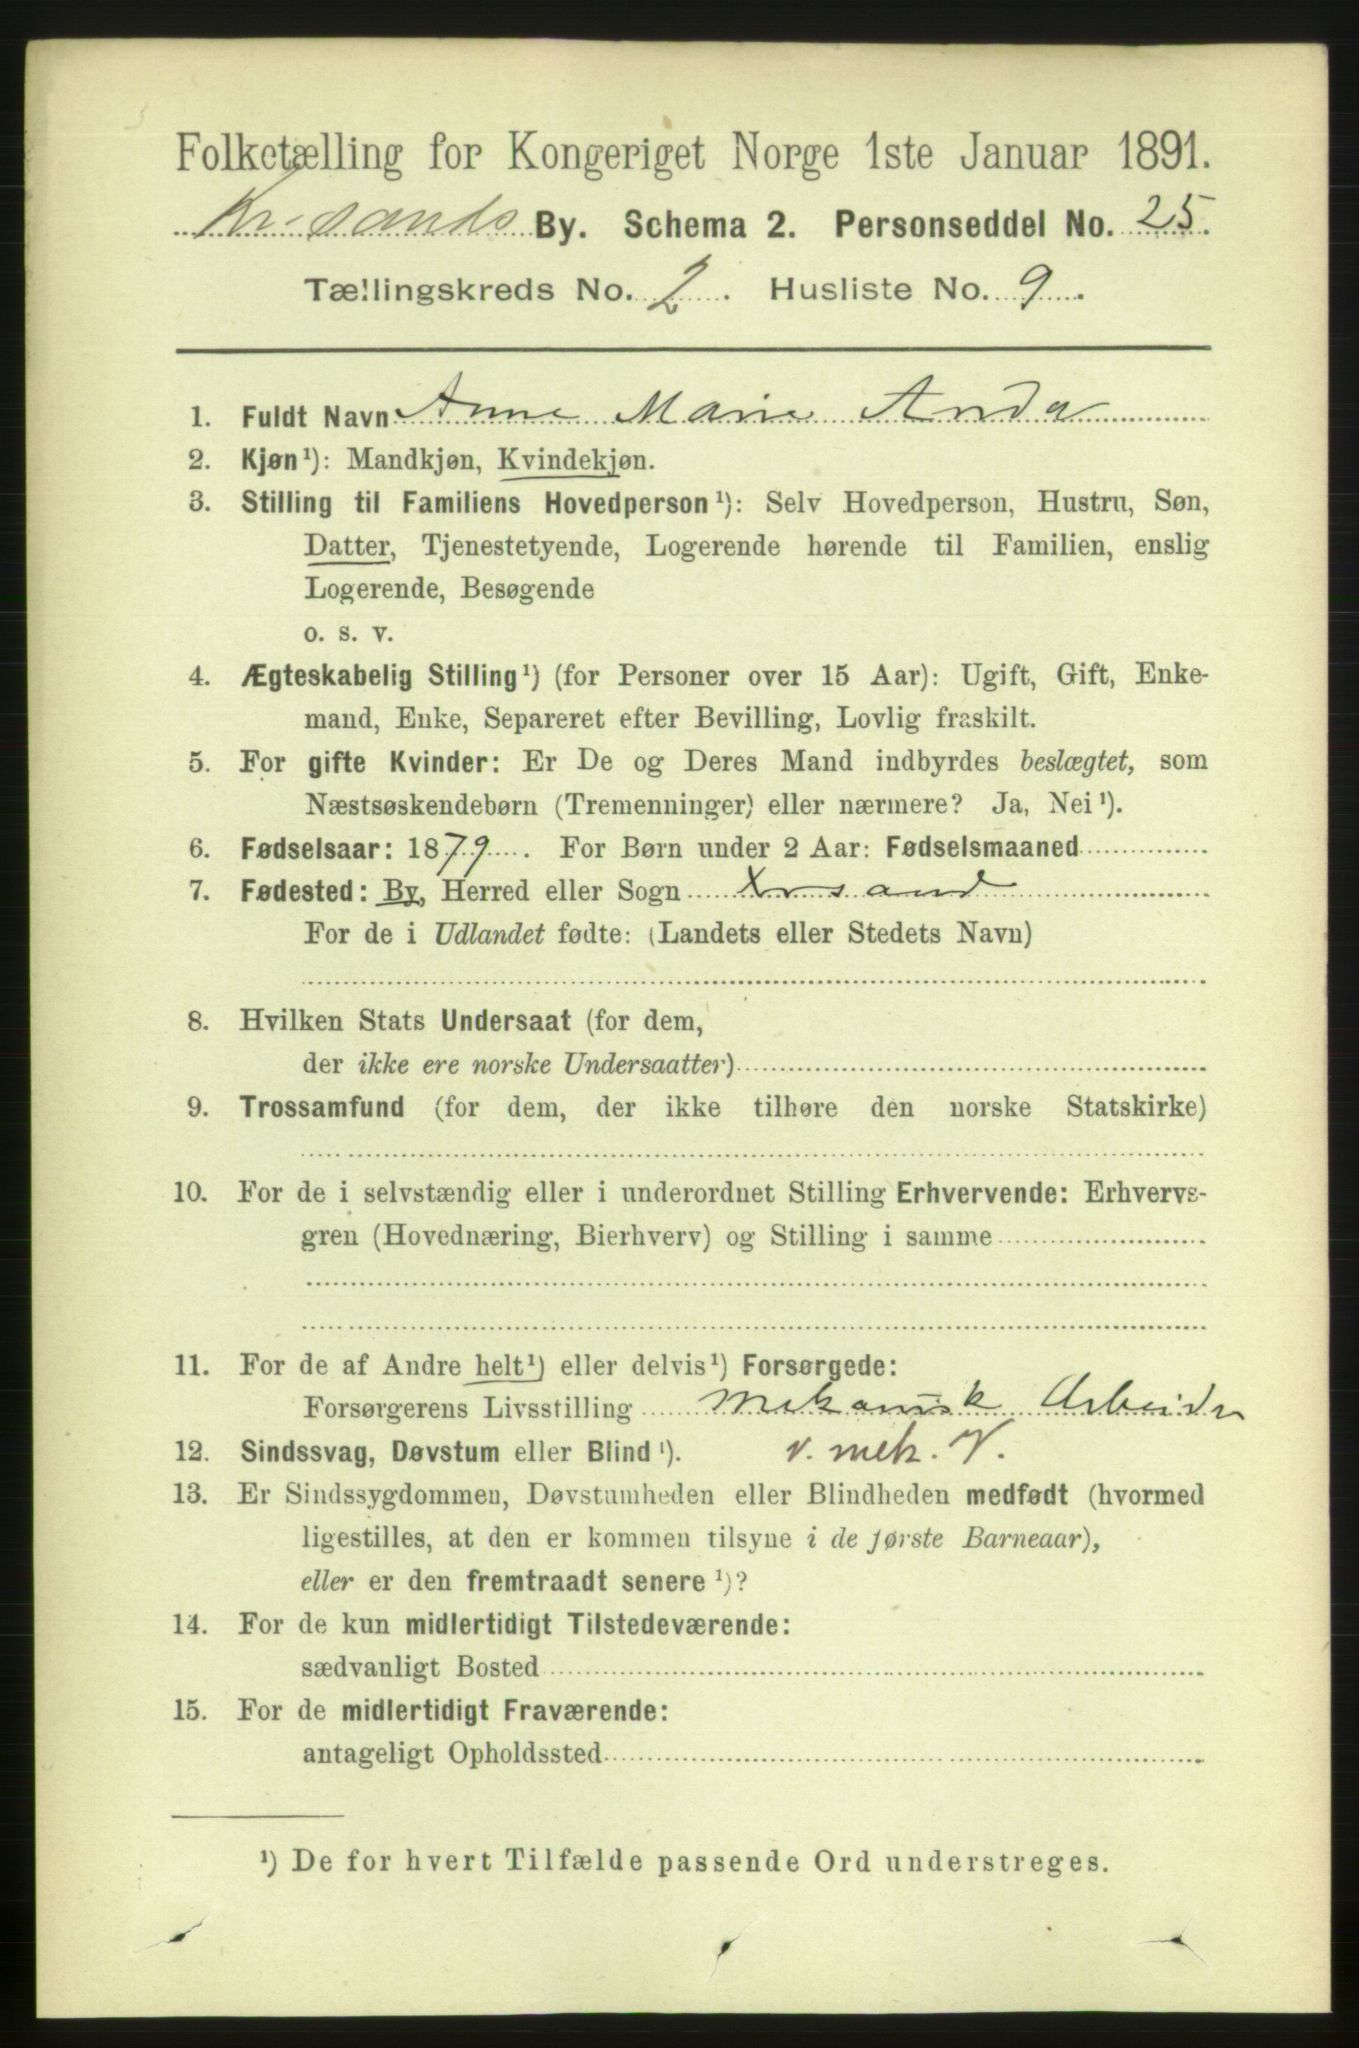 Folketælling for Kongeriget Norge 1ste Januar 1891.
Kr-sands By. Schema 2. Personseddel No. 25.
Tællingskreds No. 2. Husliste No. 9.
1. Fuldt Navn Anne Marie Anda
2. Kjøn¹): Mandkjøn, Kvindekjøn.
3. Stilling til Familiens Hovedperson¹): Selv Hovedperson, Hustru, Søn,
Datter, Tjenestetyende, Logerende hørende til Familien, enslig
Logerende, Besøgende
o. s. v.
4. Ægteskabelig Stilling¹) (for Personer over 15 Aar): Ugift, Gift, Enke-
mand, Enke, Separeret efter Bevilling, Lovlig fraskilt.
5. For gifte Kvinder: Er De og Deres Mand indbyrdes beslægtet, som
Næstsøskendebørn (Tremenninger) eller nærmere? Ja, Nei¹).
6. Fødselsaar: 1879. For Børn under 2 Aar: Fødselsmaaned
7. Fødested: By, Herred eller Sogn Krsand
For de i Udlandet fødte: (Landets eller Stedets Navn)
8. Hvilken Stats Undersaat (for dem,
der ikke ere norske Undersaatter)
9. Trossamfund (for dem, der ikke tilhøre den norske Statskirke)
10. For de i selvstændig eller i underordnet Stilling Erhvervende: Erhvervs-
gren (Hovednæring, Bierhverv) og Stilling i samme
11. For de af Andre helt¹) eller delvis¹) Forsørgede:
Forsørgerens Livsstilling Mekanisk Arbeider
12. Sindssvag, Døvstum eller Blind¹). v. mek. V.
13. Er Sindssygdommen, Døvstumheden eller Blindheden medfødt (hvormed
ligestilles, at den er kommen tilsyne i de første Barneaar),
eller er den fremtraadt senere¹)?
14. For de kun midlertidigt Tilstedeværende:
sædvanligt Bosted
15. For de midlertidigt Fraværende:
antageligt Opholdssted
¹) De for hvert Tilfælde passende Ord understreges.